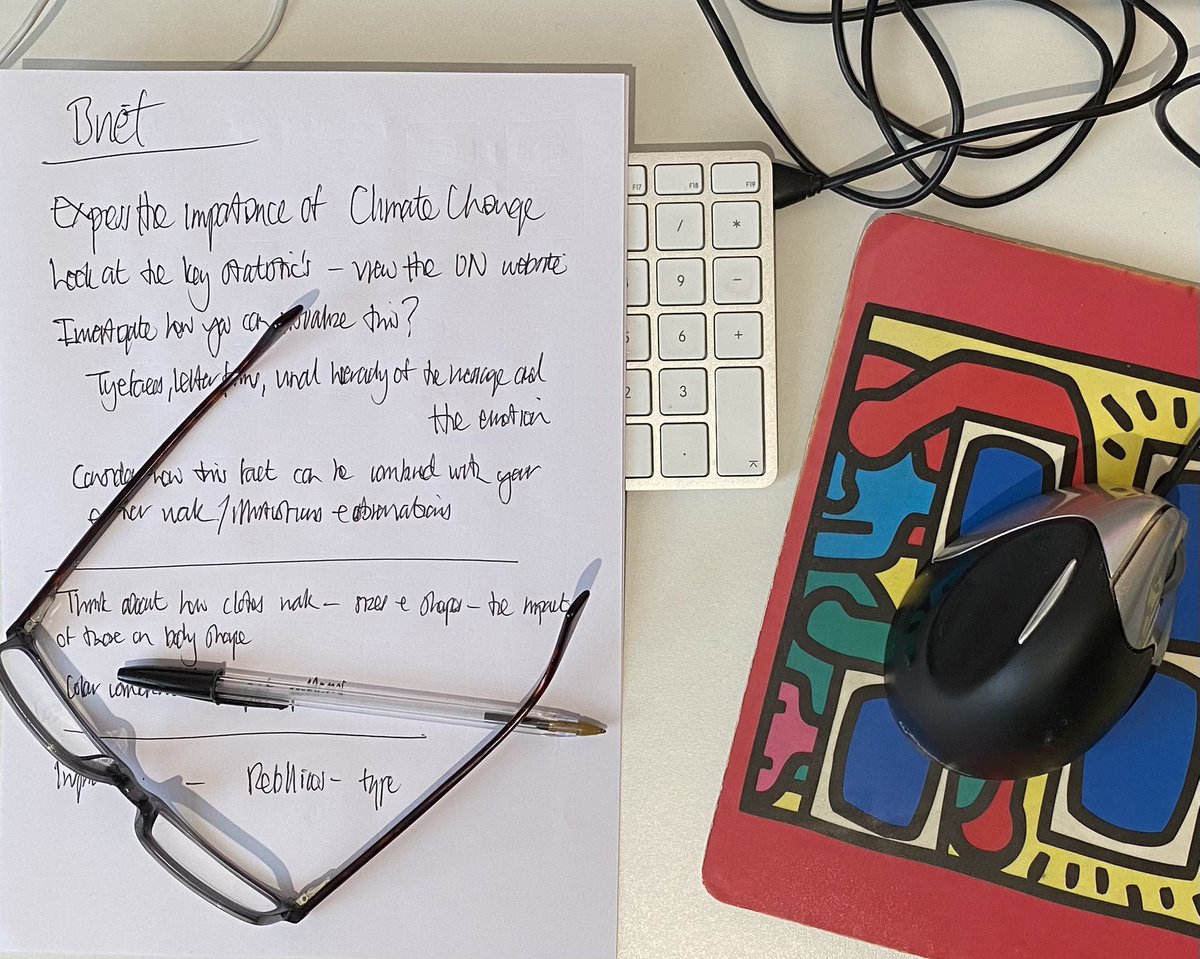 Brief
Express the importance of Climate Change
Look at the key statistic's – view the UN website
Investigate how you can visualize this?
Typefaces, letter form, visual hierarchy of the message and
the emotion
Consider how this fact can be combined with your
other work / illustrations + observations
Think about how clothes work – sizes + shapes – the impact
of those on body shape
Color
– – type
F17
F18
F19
/
*
9
–
6
+
2
3
.